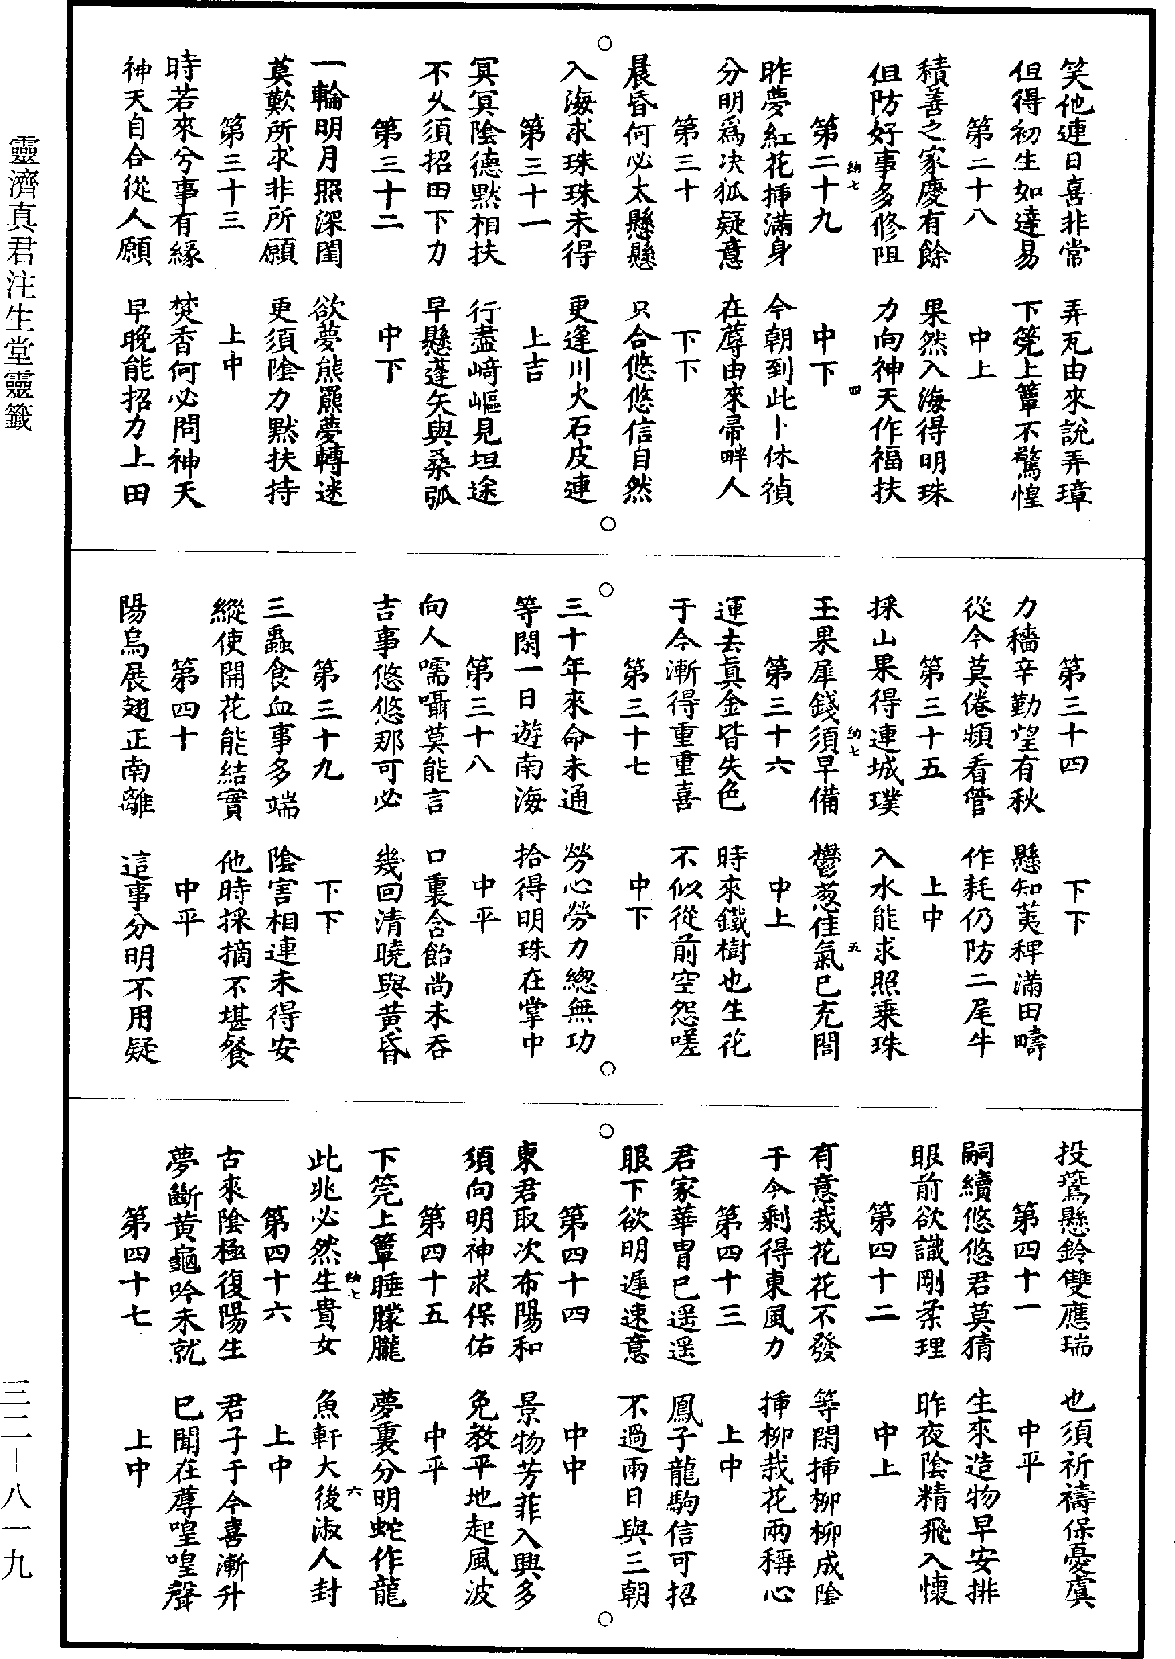 笑他連日喜非常　弄瓦由來說弄璋
但得初生如達易　下筦上簟不驚惶
第二十八　中上
積善之家慶有餘　果然入海得明珠
但防好事多修阻　力向神天作福扶
納七　四
第二十九　中下
昨夢紅花挿滿身　今朝到此卜休禎
分明爲决狐疑意　在蓐由來帚畔人
第三十　下下
晨昏何必太懸懸　只合悠悠信自然
入海求珠珠未得　更逢川火石皮連
第三十一　上吉
冥冥陰德默相扶　行盡﨑嶇見坦途
不乆須招田下力　早懸蓬矢與桑弧
第三十二　中下
一輪明月照深閨　欲夢熊羆夢轉迷
莫歎所求非所願　更須陰力默扶持
第三十三　上中
時若來兮事有緣　焚香何必問神天
神天自合從人願　早晚能招力上田
第三十四　下下
力穡辛勤望有秋　懸知荑稗滿田疇
從今莫倦頻看管　作耗仍防二尾牛
第三十五　上中
採山果得連城璞　入水能求照乗珠
玉果犀錢須早備　鬱葱佳氣已充閭
納七　五
第三十六　中上
運去眞金皆失色　時來鐵樹也生花
于今漸得重重喜　不似從前空怨嗟
第三十七　中下
三十年來命未通　勞心勞力總無功
等閑一日遊南海　拾得明珠在掌中
第三十八　中平
向人嚅囁莫能言　口裏含飴尚未吞
吉事悠悠那可必　幾回清曉與黃昏
第三十九　下下
三蟲食血事多端　陰害相連未得安
縱使開花能結實　他時採摘不堪餐
第四十　中平
陽烏展翅正南離　這事分明不用疑
投鷰懸鈴雙應瑞　也須祈禱保憂虞
第四十一　中平
嗣續悠悠君莫猜　生來造物早安排
眼前欲識剛柔理　昨夜陰精飛入懷
第四十二　中上
有意栽花花不發　等閑挿柳柳成陰
于今剩得東風力　挿柳栽花兩稱心
第四十三　上中
君家華胄已遥遥　鳳子龍駒信可招
眼下欲明遲速意　不過兩日與三朝
第四十四　中中
東君取次布陽和　景物芳菲入興多
須向明神求保佑　免教平地起風波
第四十五　中平
下筦上簟睡朦朧　夢裏分明蛇作龍
此兆必然生貴女　魚軒大後淑人封
納七　六
第四十六　上中
古來陰極復陽生　君子于今喜漸升
夢斷黃龜吟未就　已聞在蓐喤喤聲
第四十七　上中
靈濟真君注生堂靈籤
三二－八一九